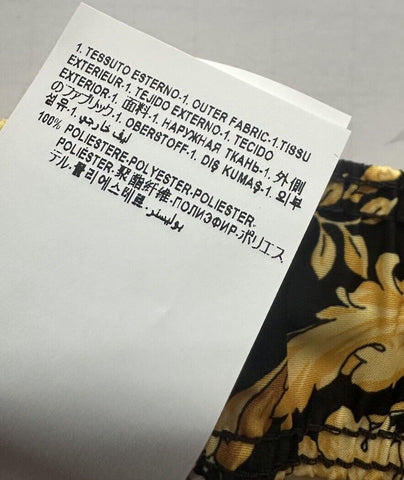 1. TESSUTO ESTERNO-1. OUTER FABRIC-1.TISSU
EXTERIEUR-1. TEJIDO EXTERNO-1. TECIDO
EXTERIOR-1. 面料-1. НАРУЖНАЯ ТКАНЬ-1. 外側
のファブリック-1. OBERSTOFF-1. DIŞ KUMAŞ-1. 외부
섬유-1. ليف خارجي
100% POLIESTERE-POLYESTER-POLIESTER.
POLIÉSTER.聚酯纤维.ПОЛИЭФИР-ポリエス
テル.폴리에스테르.بوليستر